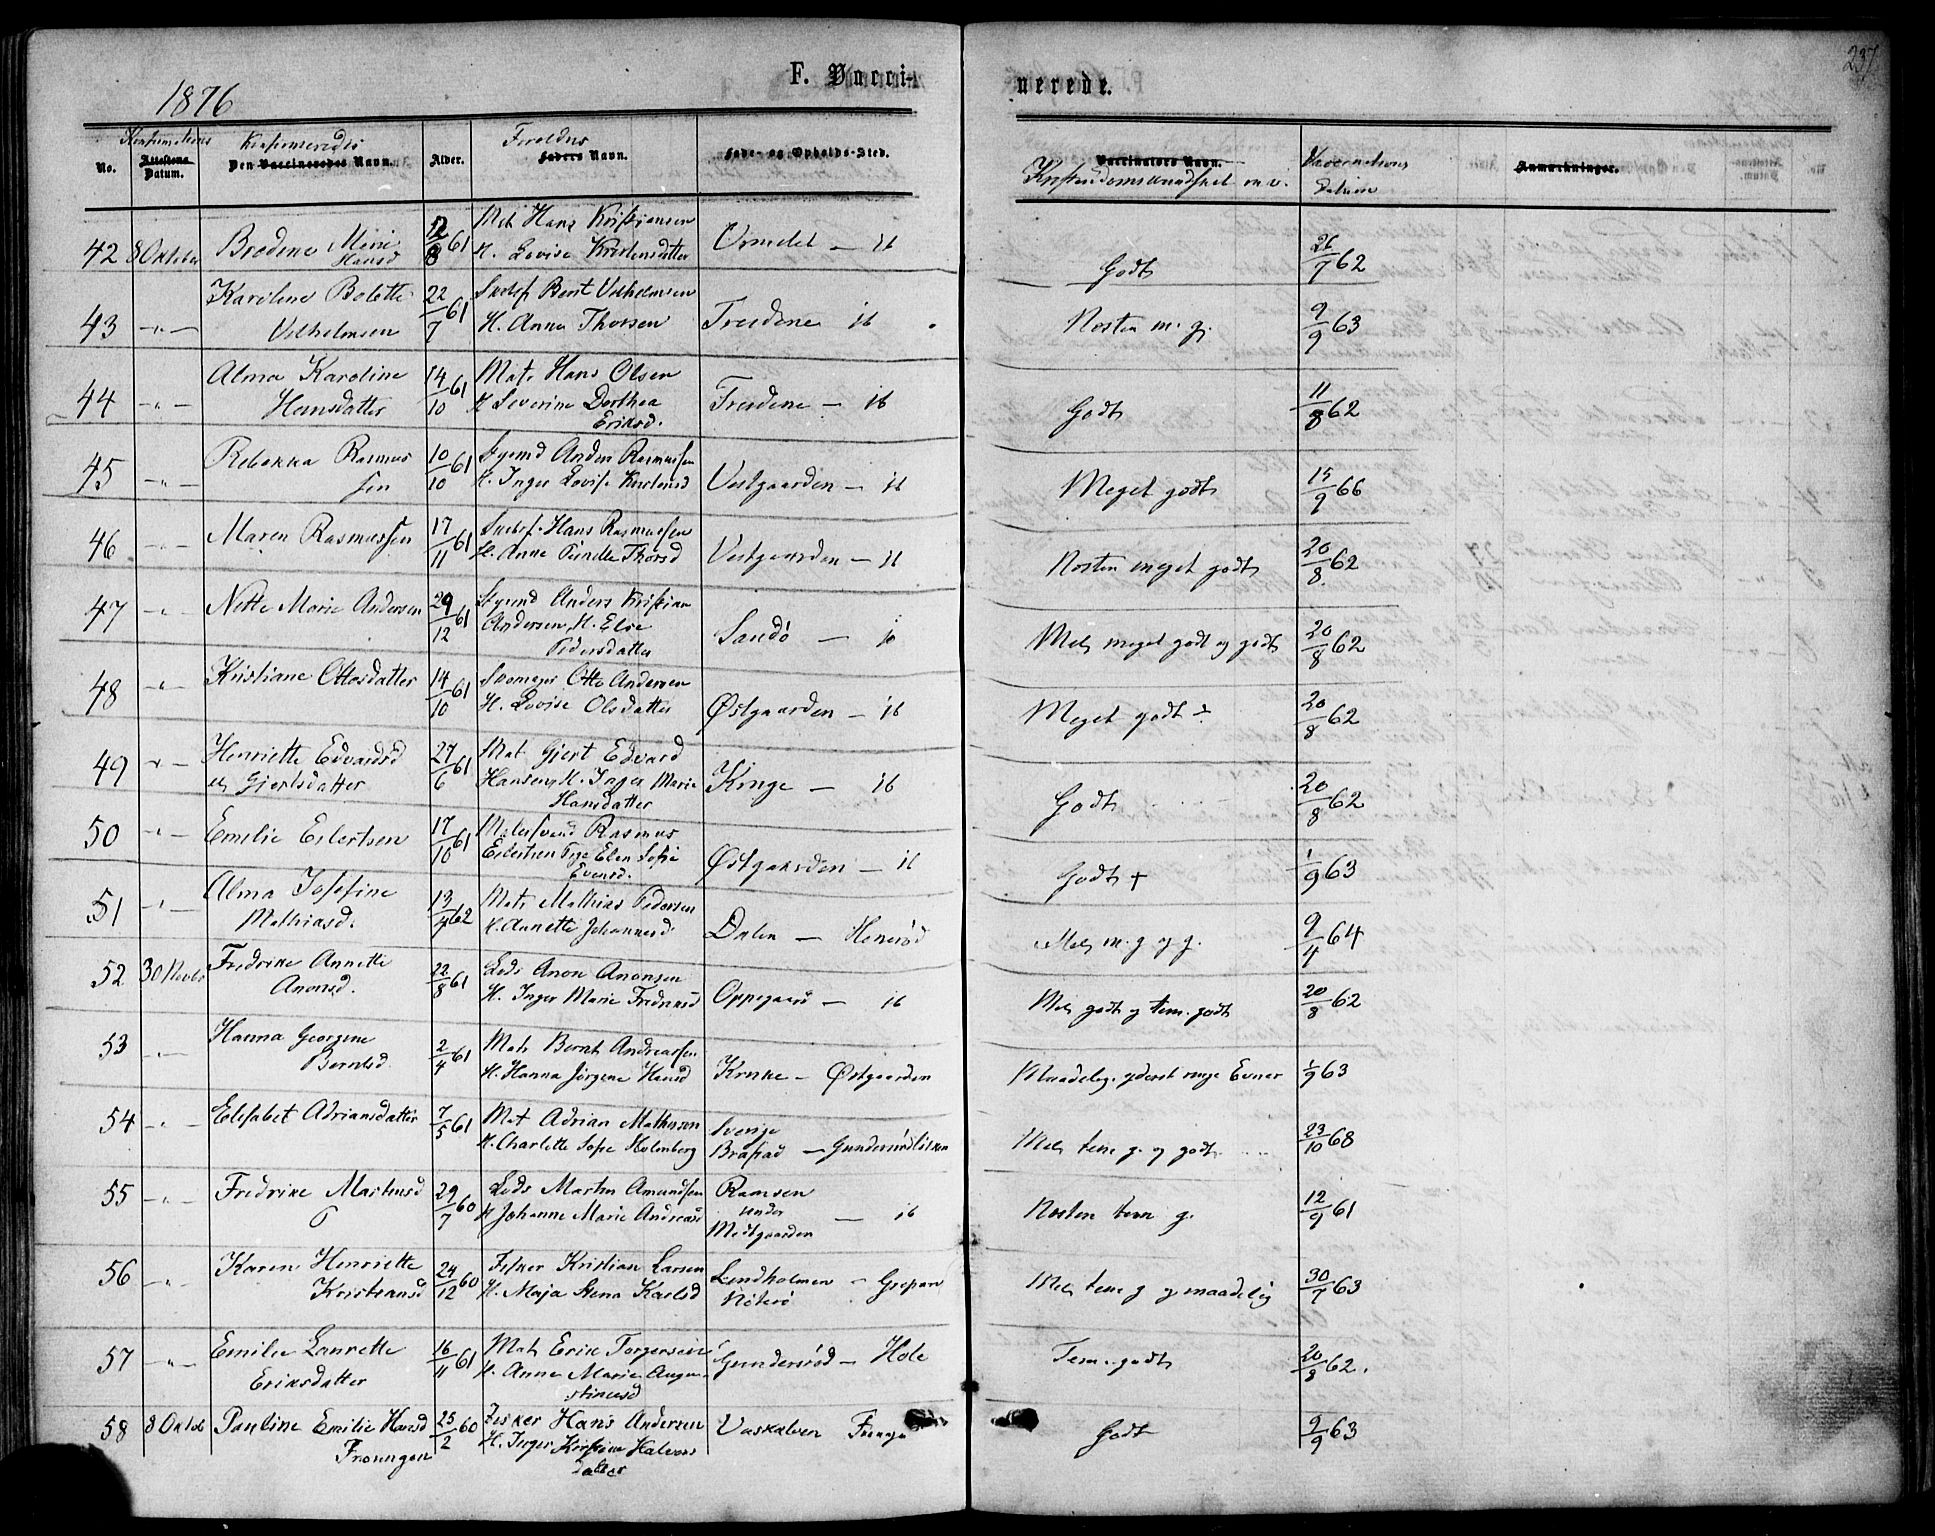 237
1876
F. Vacci-
nerede.
No.
Attestens Datum.
Konfirmeredes
Den Vaccineredes Navn.
Alder.
Forældres
Faders Navn.
Føde- og Opholds-Sted.
Vaccinators Navn.
Kristendomskundskab m.v.
Vaccinations
Datum
Anmærkninger.
42 8 Oktober
Hansd
12/8 61
Mat Hans Kristjansen
H. Lovise Kristensdatter
ib
Godt
26/7 62
43 -"-
Karoline Bolette
Vilhelmsen
22/7 61
Bent Vilhelmsen
H. Anna Thorsen
ib
Næsten m. g.
9/9 63
44 -"-
Alma Karoline
Hansdatter
14/10 61
Mat. Hans Olsen
H Severine Dorthea
Eriksd.
ib
Godt
11/8 62
45 -"-
Rebekka Rasmus
sen
10/10 61
Anders Rasmussen
H. Inger Lovise
Vestgaarden - ib
Meget godt
15/9 66
46 -"-
Maren Rasmussen
17/11 61
Hans Rasmussen
H. Anne Pernille Thorsd
Vestgaarden - ib
Næsten meget godt
20/8 62
47 -"-
Nette Marie Andersen
29/12 61
Anders Kristian
Andersen, H. Else
Pedersdatter
Sandø - ib
Mel. meget godt og godt
20/8 62
48 -"-
Kristiane Ottosdatter
14/10 61
Otto Andersen
H. Lovise Olsdatter
Østgaarden - ib
Meget godt ÷
20/8 62
49 -"-
Henriette Edvardsd
el. Gjertsdatter
27/6 61
Mat. Gjert Edvard
Hansen, H. Inger Marie
Hansdatter
- ib
Godt
20/8 62
50 -"-
Emilie Eilertsen
17/10 61
Rasmus
Eilertsen Pige Elen Sofie
Evensd.
Østgaarden - ib
Godt +
1/9 63
51 -"-
Alma Josefine
Mathiasd.
13/4 62
Mat. Mathias Pedersen
H. Annette Johannesd
Dalen -
Mel. m. g. og g.
9/4 64
52 30 Novbr
Fredrikke Annette
22/8 61
H. Inger Marie
Oppegaard - ib
Mel. godt og tem. godt
20/8 62
53 -"-
Hanna Georgine
Berntsd
2/4 61
Mat. Bernt Andreassen
H. Hanna Jørgine Hansd
- Østgaarden
Maadelig, yderst ringe Evner
1/9 63
54 -"-
Elisabet Adriansdatter
7/5 61
Mat Adrian Mathisen
H. Charlotte Sofie Holmberg
Sverige
Mel. tem g. og godt
23/10 68
55 -"-
Fredrikke
29/7 60
Lods Martin Amundsen
H Johanne Marie Andreasd
Ramsen
under
Midtgaarden
- ib
Næsten tem g.
12/9 61
56 -"-
Karen Henriette
Kristiansd
24/12 60
Fisker Kristian Larsen
H. Maja Stena Karlsd
Lindholmen
Nøterø
Mel. tem g og maadelig
30/7 63
57 -"-
Emilie Laurette
Eriksdatter
16/11 61
Mat Erik Torgersen
H. Anne Marie Augu-
stinusd
Gundersrød - Hole
Tem. godt
20/8 62.
58 8 Oktob
Pauline Emilie Hansd
25/2 60
Fisker Hans Andersen
H. Inger Kirstine Halvors
datter
Vaskalven
Godt
9/9 63